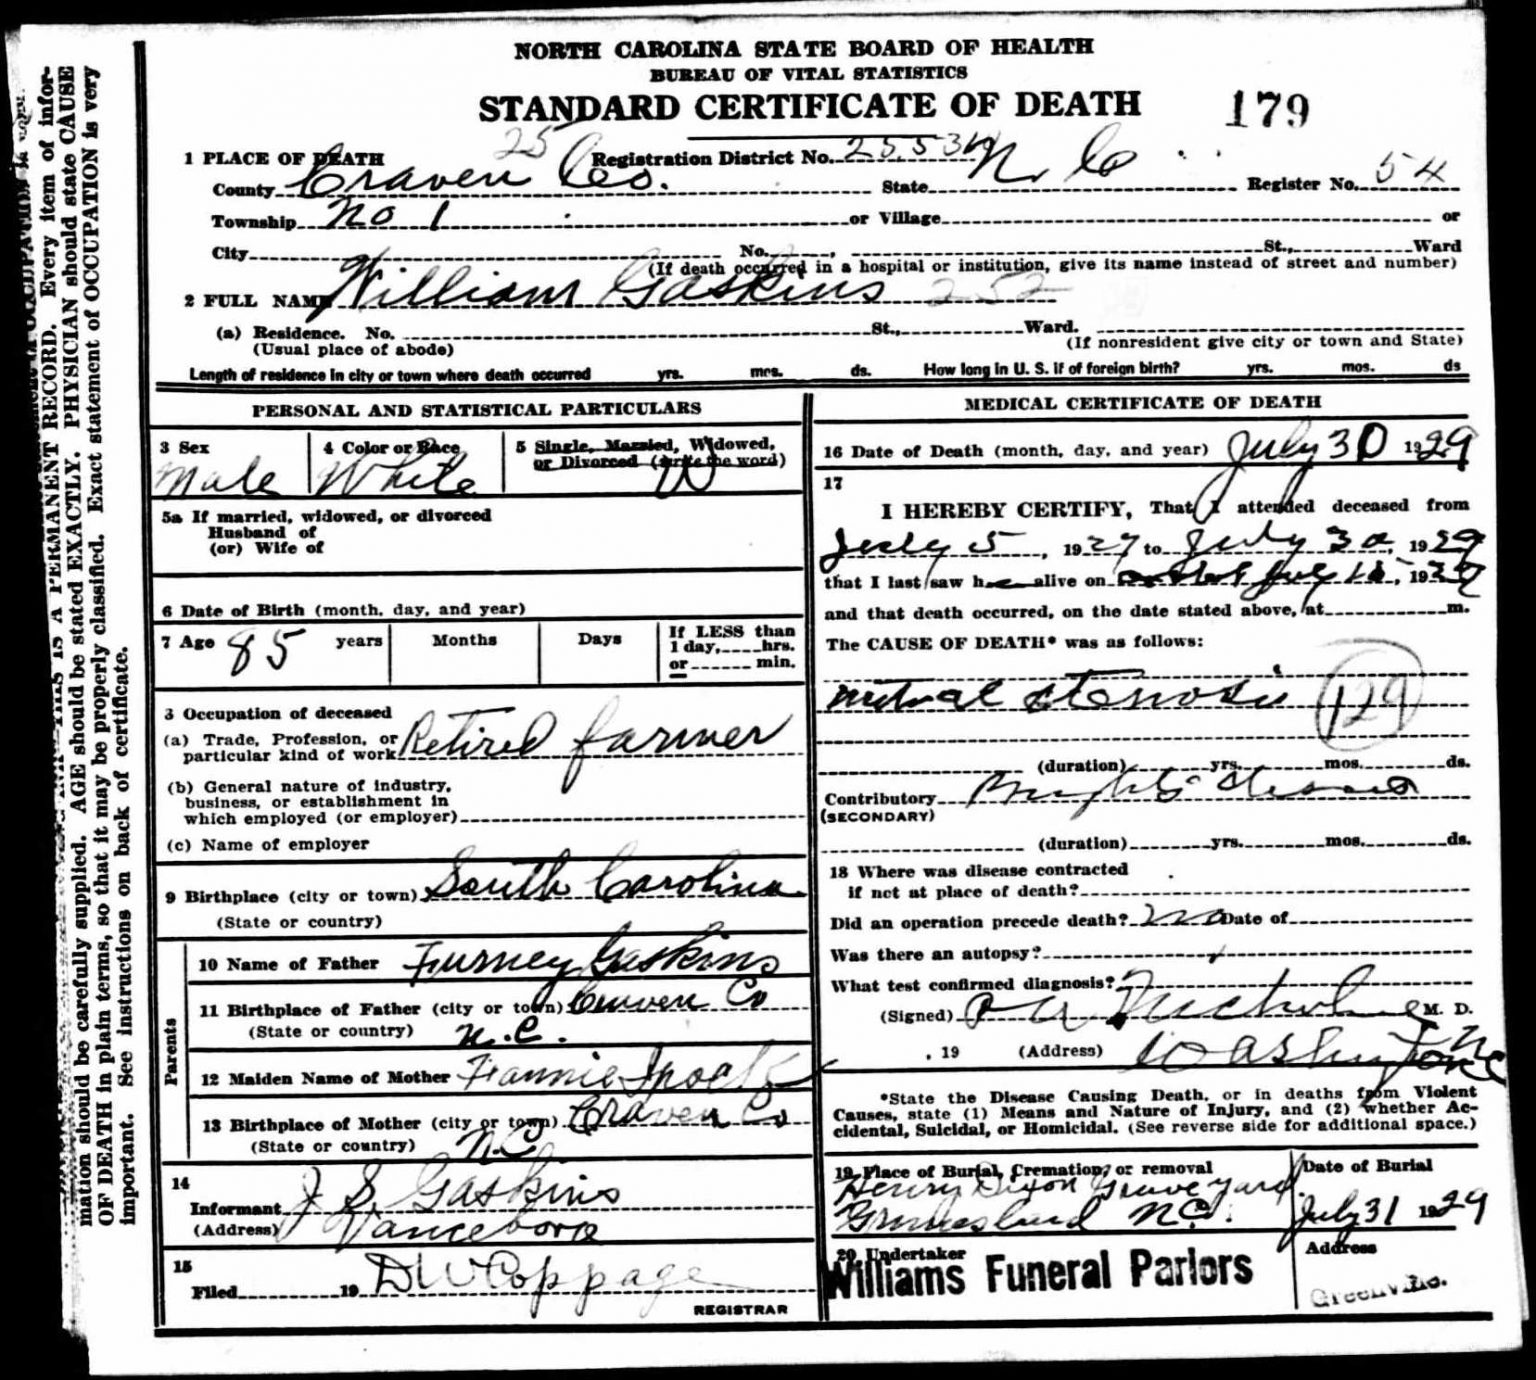 NORTH CAROLINA STATE BOARD OF HEALTH
BUREAU OF VITAL STATISTICS
STANDARD CERTIFICATE OF DEATH
179
1 PLACE OF DEATH 25 Registration District No. 25.534
County Craven Co. State N. Co Register No. 54
Township No 1 or Village or
City No. St., Ward
(If death occurred in a hospital or institution, give its name instead of street and number)
2 FULL NAME William Gaskins 252
(a) Residence. No. St., Ward.
(Usual place of abode) (If nonresident give city or town and State)
Length of residence in city or town where death occurred yrs. mos. ds. How long in U. S. if of foreign birth? yrs. mos. ds
PERSONAL AND STATISTICAL PARTICULARS
3 Sex 4 Color or Race 5 Single, Married, Widowed,
or Divorced (write the word)
Male White W
5a If married, widowed, or divorced
Husband of
(or) Wife of
6 Date of Birth (month, day, and year)
7 Age 85 years Months Days If LESS than
1 day, hrs.
or min.
3 Occupation of deceased
(a) Trade, Profession, or
particular kind of work Retired farmer
(b) General nature of industry,
business, or establishment in
which employed (or employer)
(c) Name of employer
9 Birthplace (city or town) South Carolina
(State or country)
Parents
10 Name of Father Furney Gaskins
11 Birthplace of Father (city or town) Craven Co
(State or country) N.C.
12 Maiden Name of Mother Fannie Ipock
13 Birthplace of Mother (city or town) Craven Co
(State or country) N.C
14
Informant J S Gaskins
(Address) Vanceboro
15
Filed 19 D W Coppage
REGISTRAR
MEDICAL CERTIFICATE OF DEATH
16 Date of Death (month, day, and year) July 30 1929
17
I HEREBY CERTIFY, That I attended deceased from
July 5, 1927 to July 30, 1929
that I last saw h alive on July 15, 1929
and that death occurred, on the date stated above, at m.
The CAUSE OF DEATH* was as follows:
mitral stenosis 129
(duration) yrs. mos. ds.
Contributory Brights disease
(SECONDARY)
(duration) yrs. mos. ds.
18 Where was disease contracted
if not at place of death?
Did an operation precede death? no Date of
Was there an autopsy?
What test confirmed diagnosis?
(Signed) M. D.
, 19 (Address) Washington NC
*State the Disease Causing Death, or in deaths from Violent
Causes, state (1) Means and Nature of Injury, and (2) whether Ac-
cidental, Suicidal, or Homicidal. (See reverse side for additional space.)
19 Place of Burial, Cremation, or removal Date of Burial
Henry Dixon Graveyard
Grimesland N.C. July 31 1929
20 Undertaker Address
Williams Funeral Parlors Greenville.
mation should be carefully supplied. AGE should be stated EXACTLY. PHYSICIAN should state CAUSE
OF DEATH in plain terms, so that it may be properly classified. Exact statement of OCCUPATION is very
important. See instructions on back of certificate.
THIS IS A PERMANENT RECORD. Every item of infor-